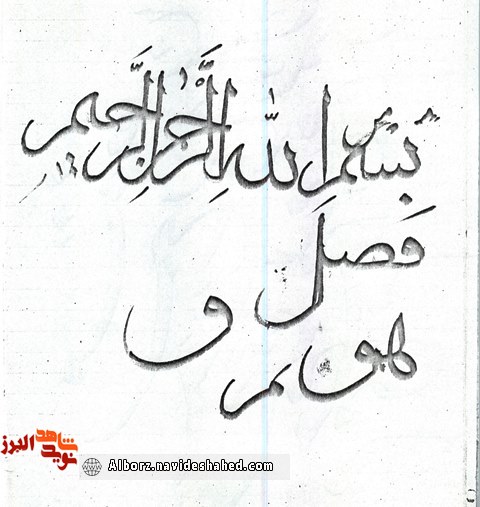 بسم الله الرحمن الرحیم
فصل
و
هو م
نوید شاهد البرز
Alborz.navideshahed.com